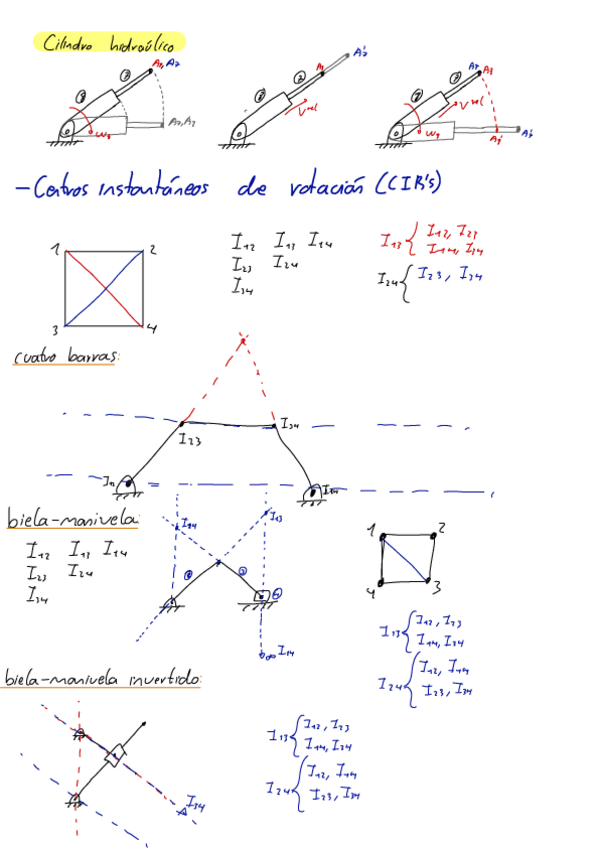 Cilindro hidraúlico
A₁, A₂
A₂, A₂
ω₃
A₁
A₂'
V rel
A₂ A₃
V rel
A₃'
- Centros instantáneos de rotación (CIR's)
1 2
3 4
I₁₂ I₁₃ I₁₄
I₂₃ I₂₄
I₃₄
I₁₃ { I₁₂, I₂₃
I₁₄, I₃₄
I₂₄ { I₂₃, I₃₄
cuatro barras:
I₂₃
I₃₄
I₁₂
I₁₄
biela-manivela:
I₁₂ I₁₃ I₁₄
I₂₃ I₂₄
I₃₄
I₂₄
I₁₃
∞ I₁₄
1 2
4 3
I₁₃ { I₁₂, I₂₃
I₁₄, I₃₄
I₂₄ { I₁₂, I₁₄
I₂₃, I₃₄
biela-manivela invertido:
I₃₄
I₁₃ { I₁₂, I₂₃
I₁₄, I₃₄
I₂₄ { I₁₂, I₁₄
I₂₃, I₃₄